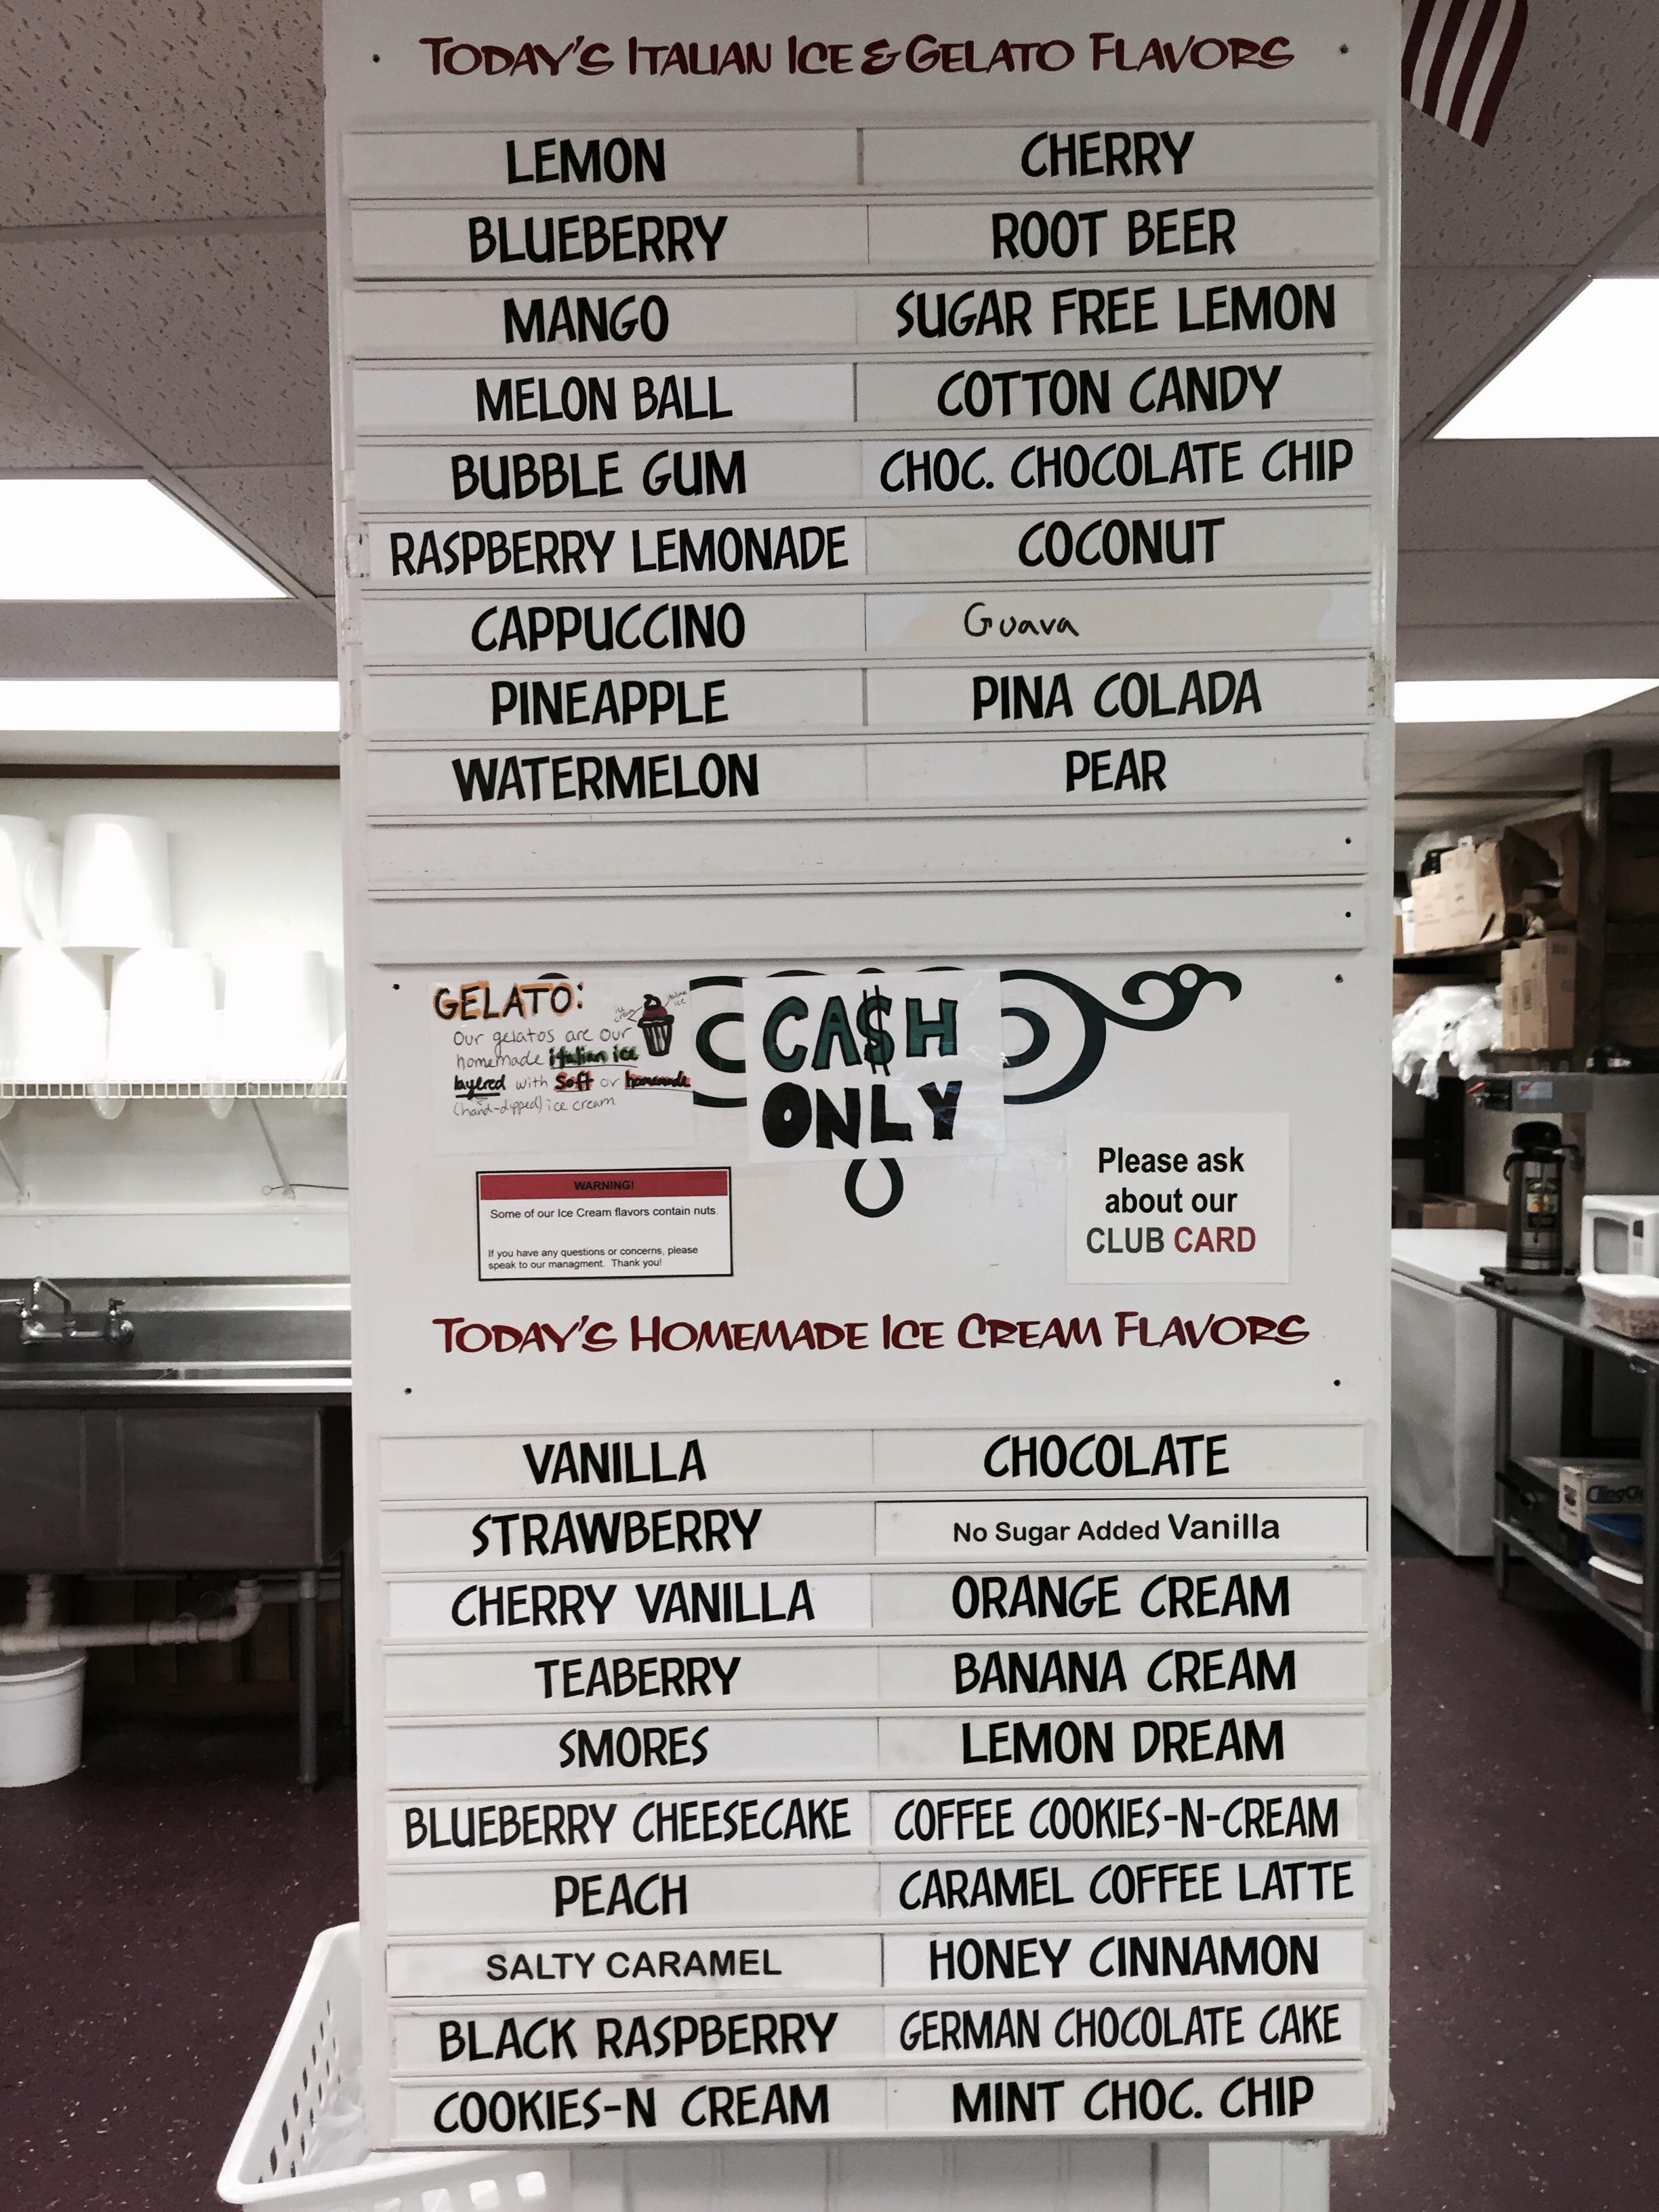 TODAY'S ITALIAN ICE & GELATO FLAVORS
LEMON
CHERRY
BLUEBERRY
ROOT BEER
MANGO
SUGAR FREE LEMON
MELON BALL
COTTON CANDY
BUBBLE GUM
CHOC. CHOCOLATE CHIP
RASPBERRY LEMONADE
COCONUT
CAPPUCCINO
Guava
PINEAPPLE
PINA COLADA
WATERMELON
PEAR
GELATO:
Our gelatos are our
homemade italian ice
layered with soft or homemade
(hand-dipped) ice cream.
CA$H
ONLY
WARNING!
Some of our Ice Cream flavors contain nuts.
If you have any questions or concerns, please
speak to our managment. Thank you!
Please ask
about our
CLUB CARD
TODAY'S HOMEMADE ICE CREAM FLAVORS
VANILLA
CHOCOLATE
STRAWBERRY
No Sugar Added Vanilla
CHERRY VANILLA
ORANGE CREAM
TEABERRY
BANANA CREAM
SMORES
LEMON DREAM
BLUEBERRY CHEESECAKE
COFFEE COOKIES-N-CREAM
PEACH
CARAMEL COFFEE LATTE
SALTY CARAMEL
HONEY CINNAMON
BLACK RASPBERRY
GERMAN CHOCOLATE CAKE
COOKIES-N CREAM
MINT CHOC. CHIP